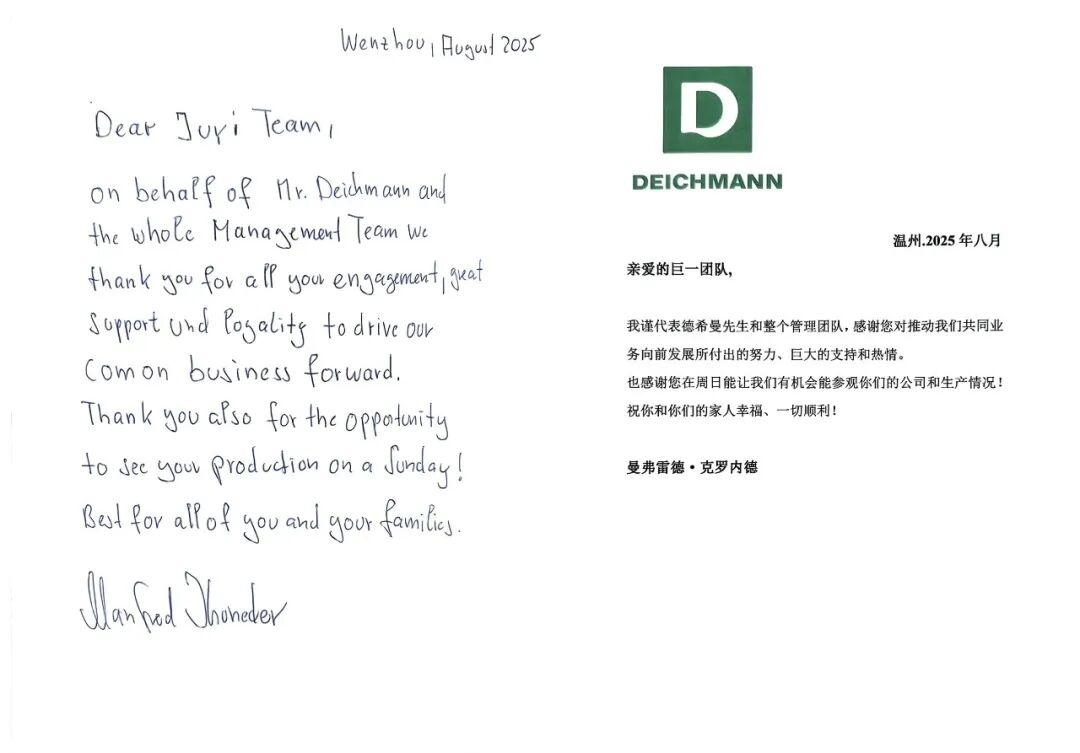 Wenzhou, August 2025
Dear Juyi Team,
on behalf of Mr. Deichmann and
the whole Management Team we
thank you for all your engagement, great
support und Pogality to drive our
Comon business forward.
Thank you also for the opportunity
to see your production on a Sunday!
Best for all of you and your families.
Manfred
D
DEICHMANN
温州.2025 年八月
亲爱的巨一团队,
我谨代表德希曼先生和整个管理团队, 感谢您对推动我们共同业
务向前发展所付出的努力、巨大的支持和热情。
也感谢您在周日能让我们有机会能参观你们的公司和生产情况!
祝你和你们的家人幸福、一切顺利!
曼弗雷德·克罗内德